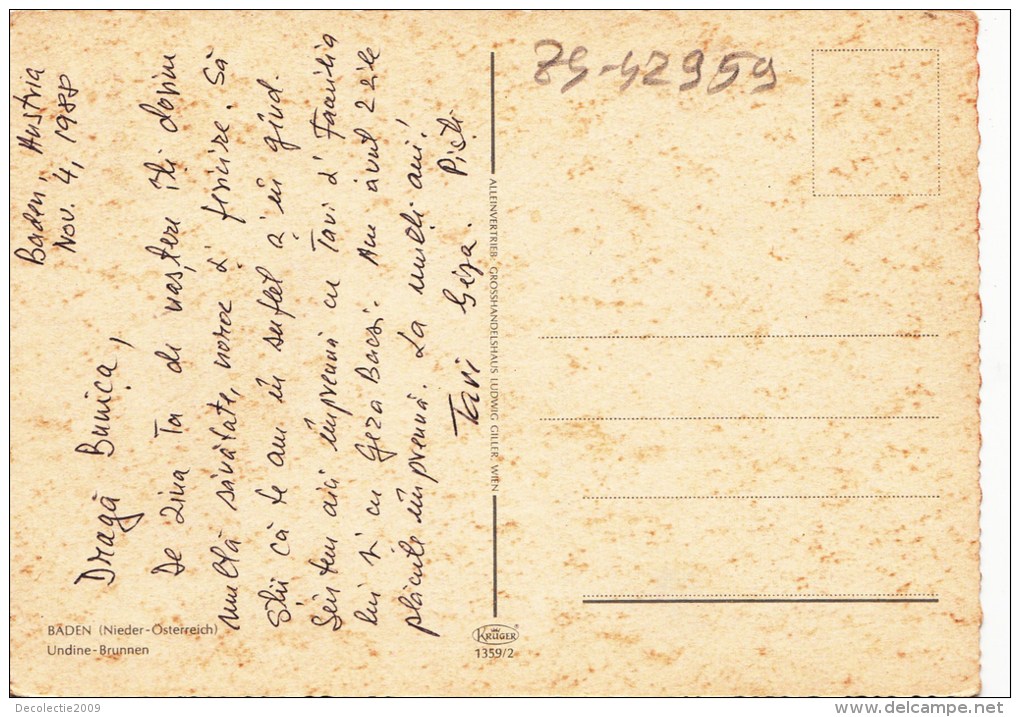 Baden, Austria
Nov. 4, 1988
Dragă Bunica,
De Ziua Ta de naștere îți dorim
multă sănătate, noroc și fericire. Să
știi că te am în suflet și în gînd.
Sîntem aici împreună cu Tavi și Familia
lui și cu Geza Bacsi. Am avut 2 zile
plăcute împreună. La mulți ani!
Tavi Geza.
79-42959
ALLEINVERTRIEB: GROSSHANDELSHAUS LUDWIG GILLER, WIEN
BADEN (Nieder-Österreich)
Undine-Brunnen
KRÜGER
1359/2
Decolectie2009
www.delcampe.net